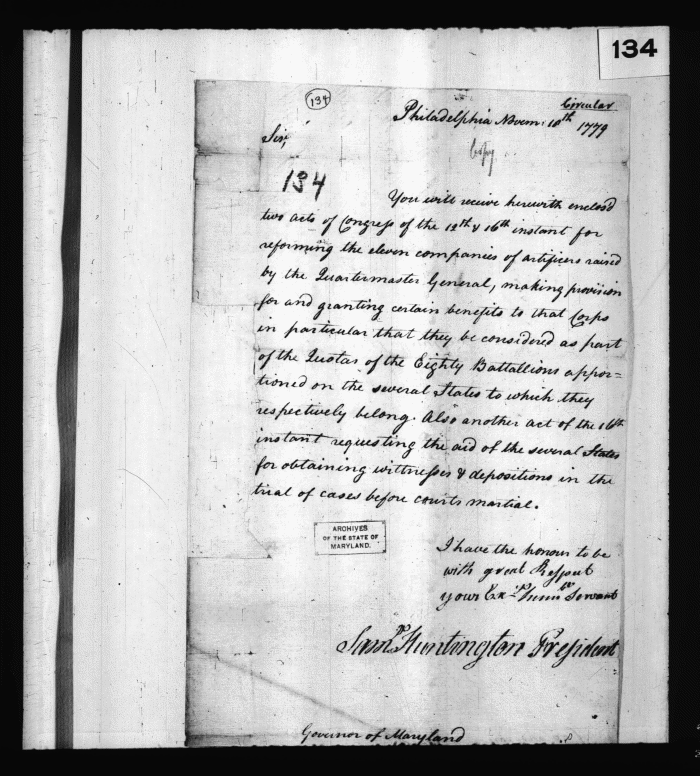 134
134
Circular
Philadelphia Novem: 10th 1779
Copy
Sir,
134
You will receive herewith enclosd
two acts of Congress of the 12th & 16th instant for
reforming the eleven companies of artificers raised
by the Quartermaster General, making provision
for and granting certain benefits to that Corps
in particular that they be considered as part
of the Quotas of the Eighty Battallions appor=
tioned on the several States to which they
respectively belong. Also another act of the 16th
instant requesting the aid of the several States
for obtaining wittnesses & depositions in the
trial of cases before courts martial.
ARCHIVES
OF THE STATE OF
MARYLAND.
I have the honour to be
with great Respect
your Exys humble Servant
Saml Huntington President
Governor of Maryland